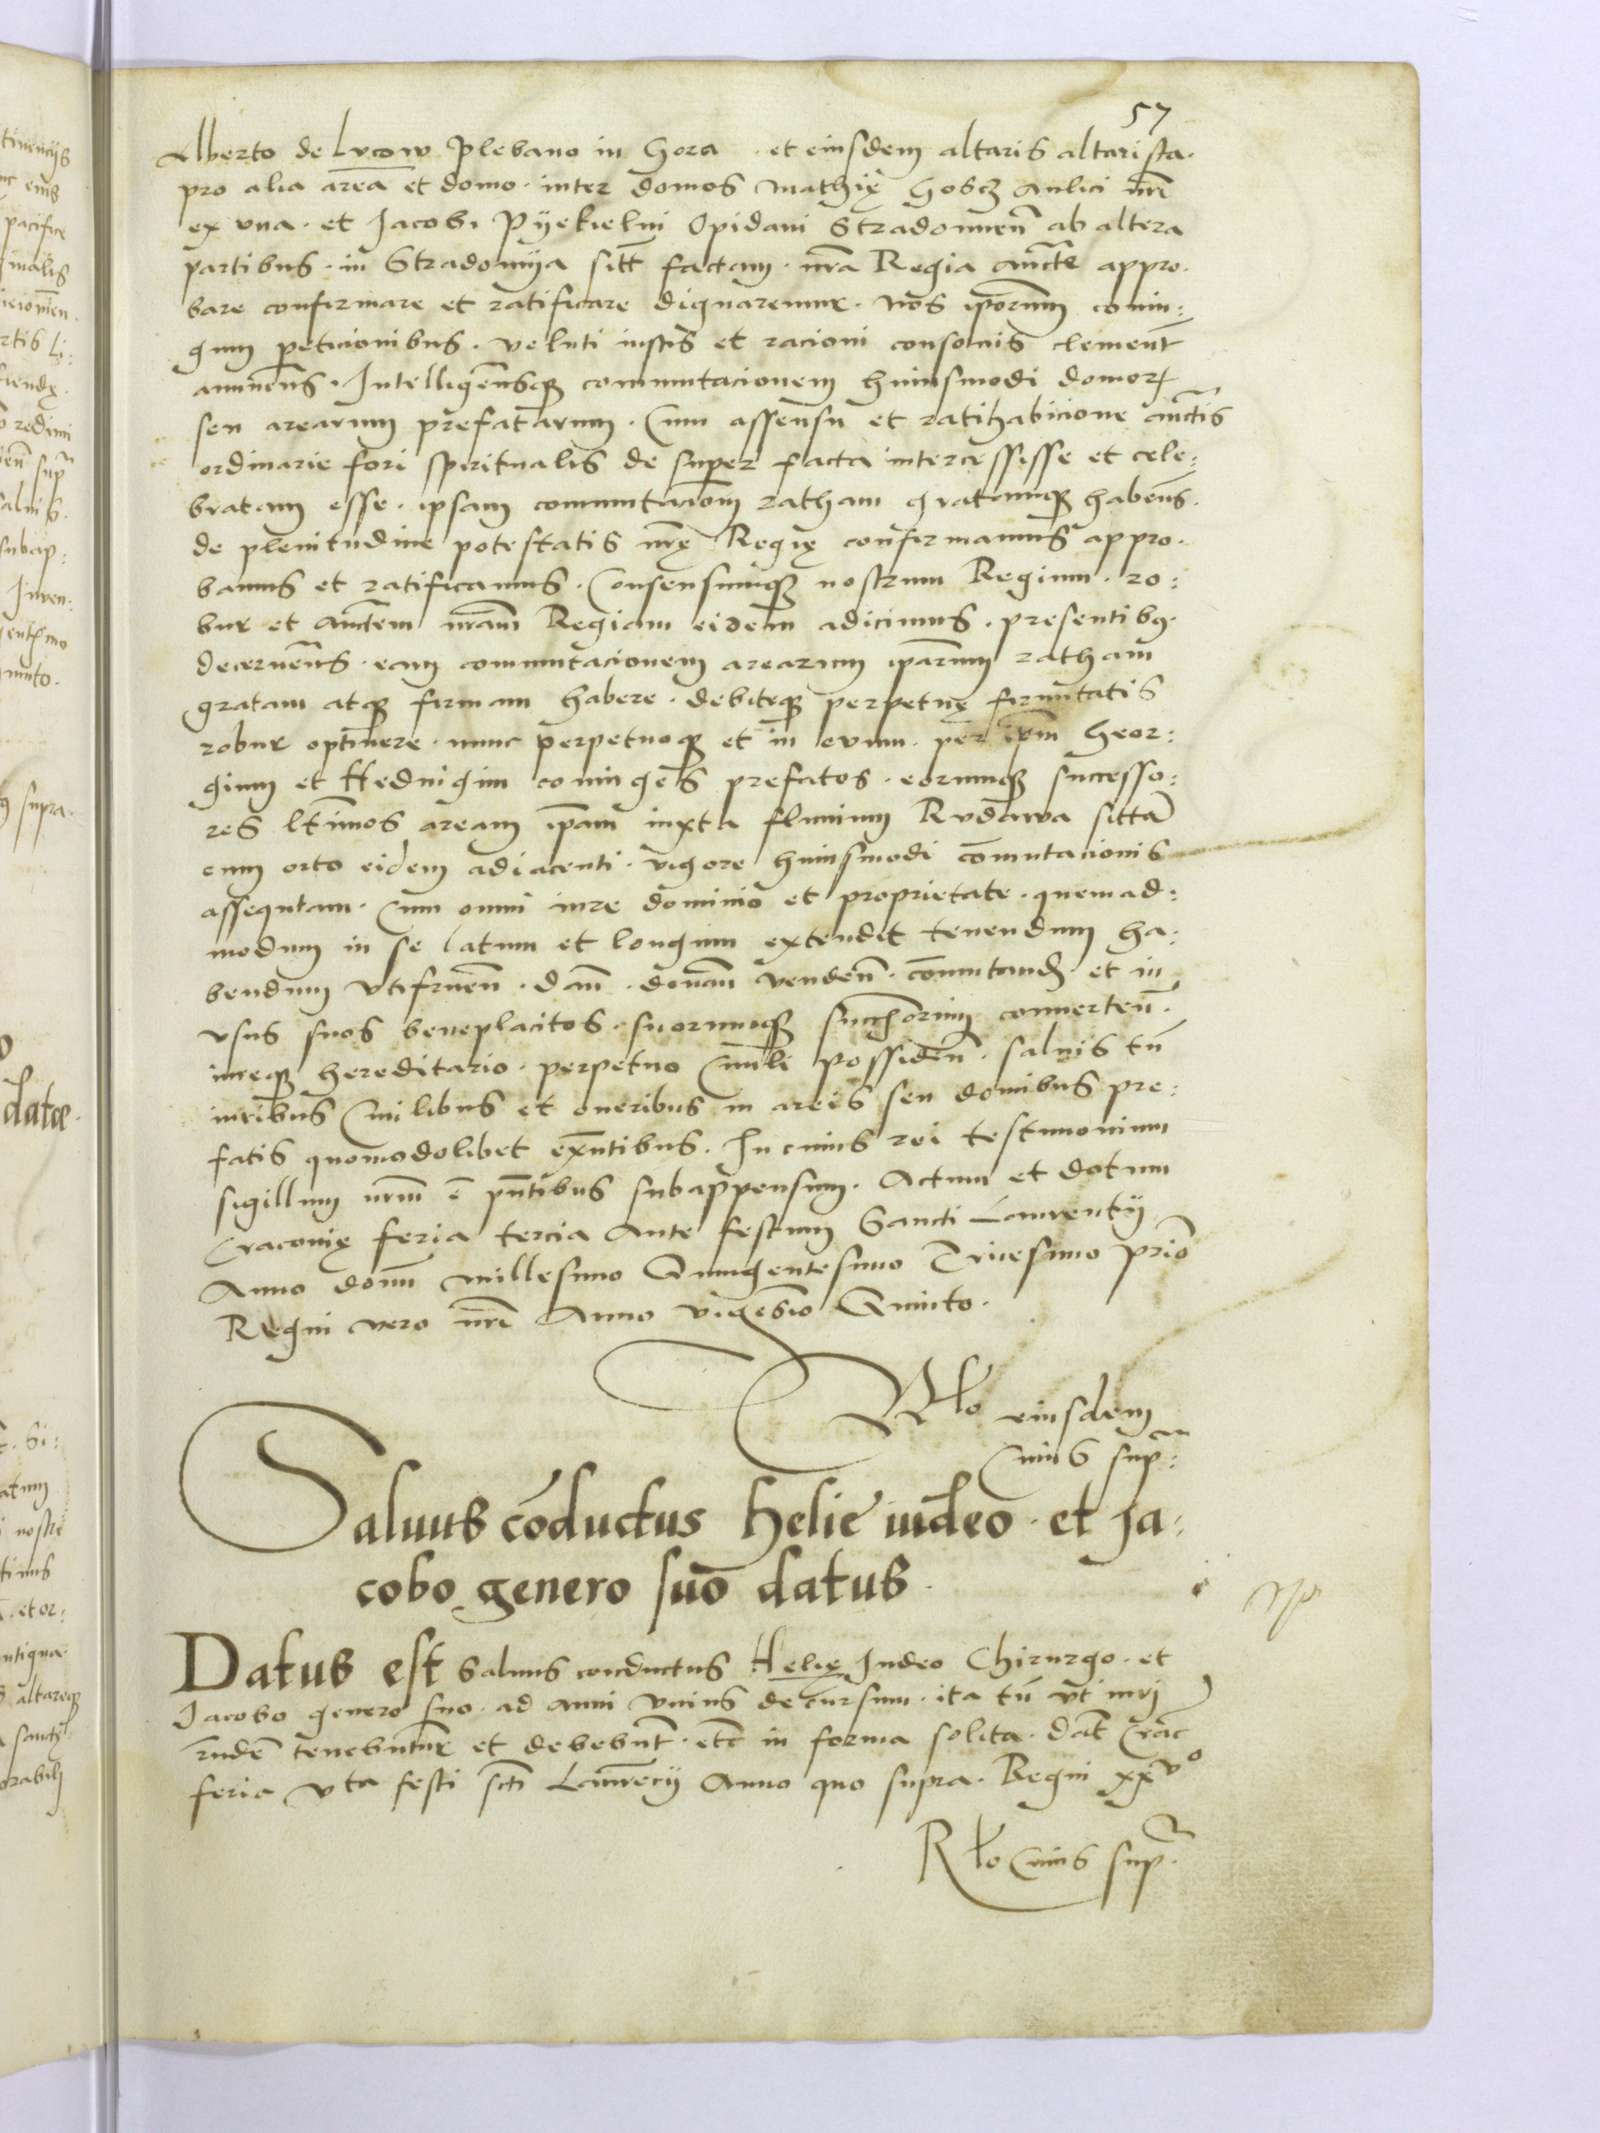 57
Alberto de Lucow Plebano in Gora · et eiusdem altaris altarista ·
pro alia areā et domo · inter domos Mathię Aulici nr̄i
ex una · et Jacobi Pÿekielni Opidani Stradomień ab altera
partibus · in Stradomÿa sitt̄ factam · nr̄a Regia auc̄te appro·
bare confirmare et ratificare dignaremur · Nos ip̄orum coniu:
gum peticionibus · veluti iustis et racioni consonis clement̄
annuen̄s · Intelligen̄sq; commutacionem huiusmodi domorꝝ
seu arearum prefatarum · Cum assensu et ratihabicione auc̄tis
ordinarie fori spiritualis de super facta intercessisse et cele:
bratam esse · ipsam commutacio̅m ratham gratamq; haben̄s ·
de plenitudine potestatis nr̄ę Regię confirmamus appro·
bamus et ratificamus · Consensumq; nostrum Regium · ro:
bur et auc̄tem nr̄am Regiam eidem adicimus · presentibꝯ ·
decernen̄s · eam commutacionem arearum ip̄arum ratham
gratam atq; firmam habere · debiteq; perpetuę firmitatis
robur optinere · nunc perpetuoq; et in evum · per ip̄m Geor:
gium et Hedvigim coniuges prefatos · eorumq; successo:
res ltīmos aream ip̄am iuxta fluvium Rudawa sittā
cum orto eidem adiacenti · vigore huiusmodi com̄utacionis
assequtam · Cum omni iure dominio et proprietate · quemad:
modum in se latum et longum extendit tenendum ha:
bendum utifruen̄ · dan̄ · donan̄ venden̄ · com̄utand̄ · et in
usus suos beneplacitos · suorumq; succ̄orum converten̄ ·
iureq; hereditario · perpetuo Civili possiden̄ · salvis tn̄
iuribus Civilibus et oneribus in areis seu domibus pre:
fatis quomodolibet exn̄tibus · In cuius rei testimonium
sigillum nr̄m ē pn̄tibus subappensum · Actum et datum
Cracovię feria tercia Ante festum Sancti Laurentÿ
Anno domī millesimo Quingentesimo Tricesimo primo
Regni vero nr̄i Anno vigesīo Quinto ·
Rl̄o eiusdem
Cuius sup̄ :
Salvus cōductus Helie iudeo · et Ja:
cobo genero suo datus ·
Datus est Salvus conductus Helię Iudeo Chirurgo · et
Jacobo genero suo · ad anni unius decursum · ita tn̄ ut iuri
tenebuntur et debebunt̄ · etc̄ in forma solita · Dat̄ Crac̄
feria Vta festi sc̄ti Laurencÿ Anno quo supra · Regni xxvº
Rl̄o Cuius sup̄ ·